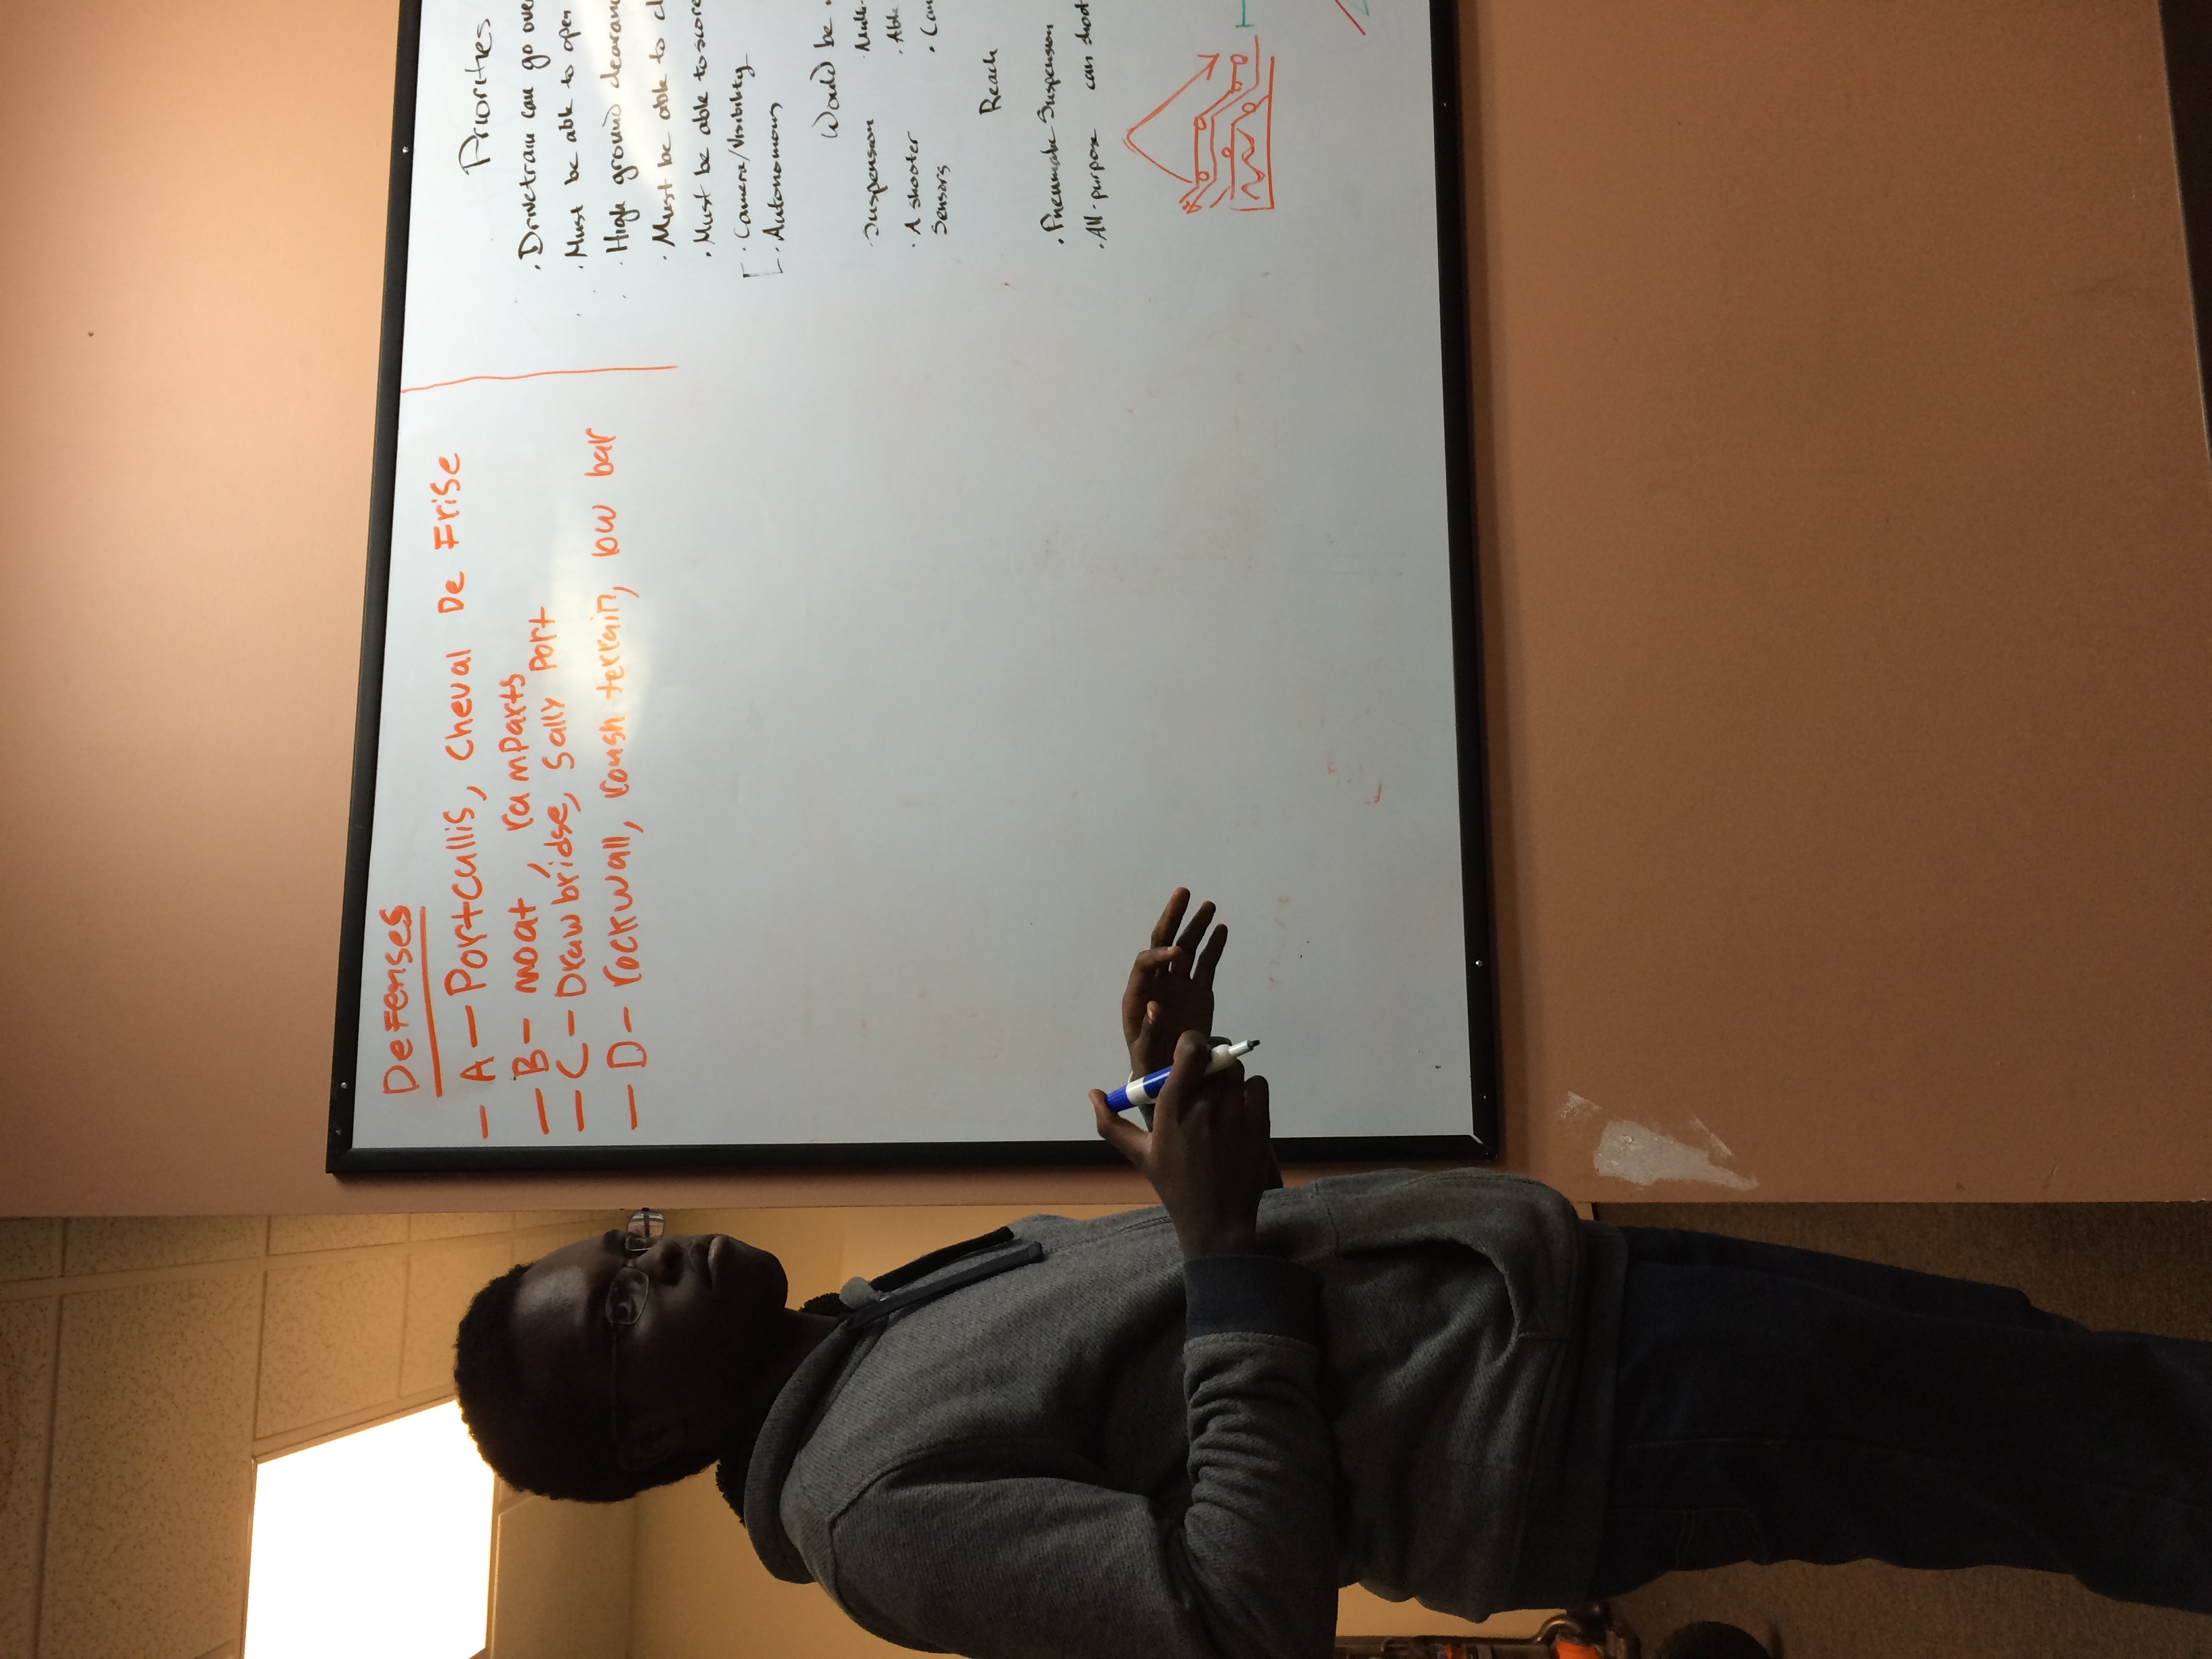 Defenses
- A - Portcullis, Cheval De Frise
- B - moat, ramparts
- C - Drawbridge, Sally Port
- D - rockwall, rough terrain, low bar
Priorities
. Drivetrain can go over
. Must be able to open
. High ground clearanc
. Must be able to cl
. Must be able to score
. Camera/Visibility
. Autonomous
Would be
. Suspension
. A shooter
Sensors
. Mult
. Abl
. Can
Reach
. Pneumatic Suspension
. All-purpose can shoot